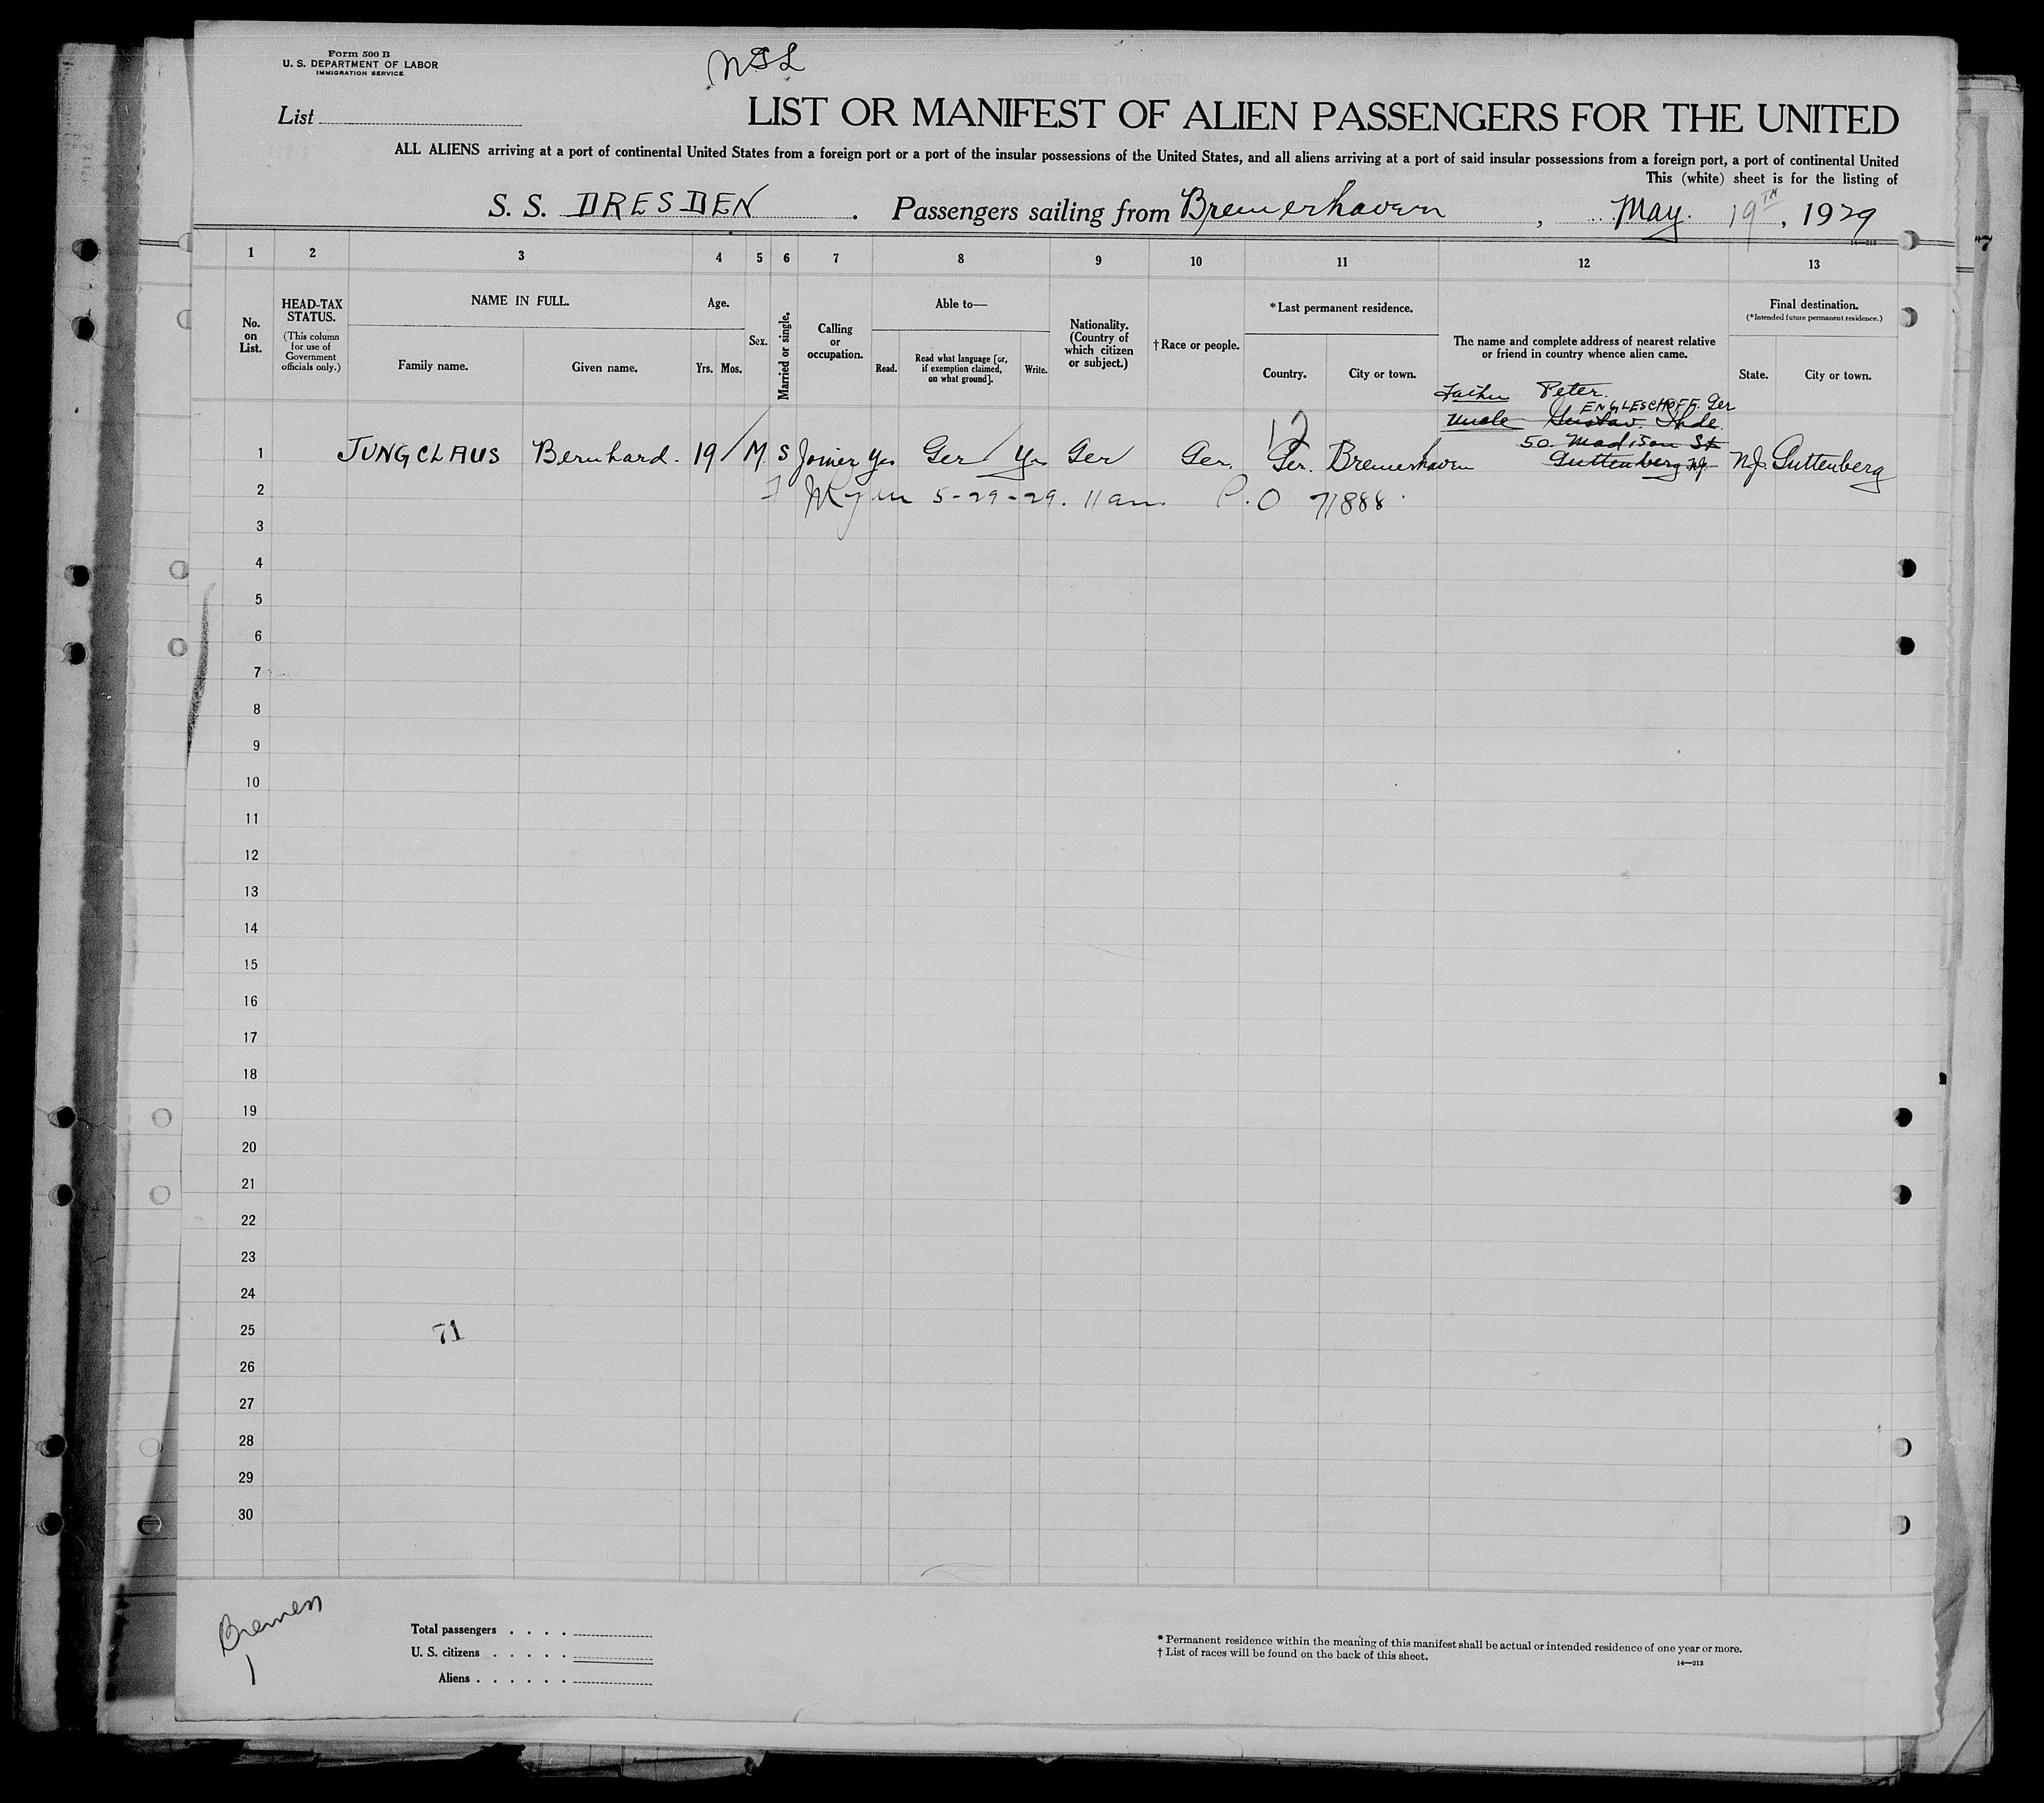 Form 500 B
U. S. DEPARTMENT OF LABOR
IMMIGRATION SERVICE
List
LIST OR MANIFEST OF ALIEN PASSENGERS FOR THE UNITED
ALL ALIENS arriving at a port of continental United States from a foreign port or a port of the insular possessions of the United States, and all aliens arriving at a port of said insular possessions from a foreign port, a port of continental United
This (white) sheet is for the listing of
S. S. DRESDEN . Passengers sailing from Bremerhaven , May. 19TH, 1929
14—213
1 2 3 4 5 6 7 8 9 10 11 12 13
No. on List.
HEAD-TAX STATUS.
(This column for use of Government officials only.)
NAME IN FULL.
Family name. Given name.
Age.
Yrs. Mos.
Sex.
Married or single.
Calling or occupation.
Able to—
Read. Read what language [or, if exemption claimed, on what ground]. Write.
Nationality. (Country of which citizen or subject.)
† Race or people.
* Last permanent residence.
Country. City or town.
The name and complete address of nearest relative or friend in country whence alien came.
Final destination.
(* Intended future permanent residence.)
State. City or town.
Father Peter.
ENGLESCHOFF. Ger
Uncle Gustav.
50. Madison St
Guttenberg NJ.
12
1 JUNGCLAUS Bernhard. 19 M. S Joiner Yes Ger Yes Ger Ger. Ger. Bremerhaven NJ. Guttenberg
2 5-29-29. 11 am P.O 71888
3
4
5
6
7
8
9
10
11
12
13
14
15
16
17
18
19
20
21
22
23
24
25 71
26
27
28
29
30
Bremen
1
Total passengers
U. S. citizens
Aliens
* Permanent residence within the meaning of this manifest shall be actual or intended residence of one year or more.
† List of races will be found on the back of this sheet.
14—213